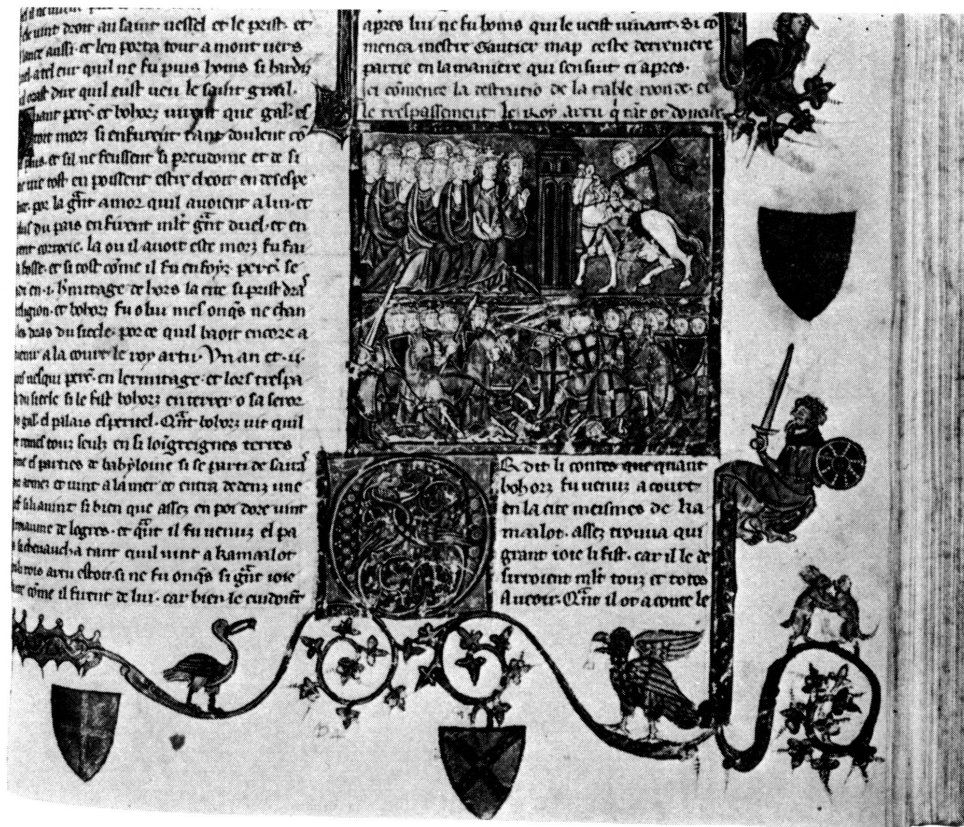 vint droit au saint vessel et le prist. et
lance aussi. et len porta tout amont vers
a tel eur quil ne fu puis homs si hardi
osast dire quil eust veu le saint greal.
uant perc. et bohorz virent que gal. es
toit morz si en furent tant doulent co
plus. et sil ne feussent si preudome et de si
ne vie tost en poissent estre cheoit en desespe
por la gnt amor quil avoient a lui. et
du pais en firent mlt gnt duel. et en
rent correcie. la ou il avoit este morz fu fai
la fosse. et si tost come il fu enfoyz. perc. se
en .i. hmitage de hors la cite si prist dras
religion. et bohorz fu o lui mes onqs ne chan
les dras du siecle. por ce quil baoit encore a
venir a la court le roy artu. Vn an et .ii.
vesqui perc. en lermitage. et lors trespa
du siecle si le fist bohorz enterrer o sa seror
gal. el palais esperitel. Qnt bohorz vit quil
remes touz seulz en si loigteignes terres
parties de babyloine si se parti de
armez et vint a la mer et entra dedenz une
si li avint si bien que assez en poi dore vint
roiaume de logres. et qnt il fu venuz el pa
si chevaucha tant quil vint a kamaalot
rois artu estoit. si ne fu onqs si gnt ioie
come il firent de lui. car bien le cuidoient
apres lui ne fu homs qui le veist vivant. Si co
menca mestre Gautier map ceste derreniere
partie en la maniere qui sensuit ci apres.
ci comence la destrutio de la table roonde. et
le trespassement le Roy artu q tant ot
Or dit li contes que quant
bohorz fu venuz a court
en la cite meismes de ka
maalot. assez trouva qui
grant ioie li fist. car il le de
sirroient mlt touz et totes
a veoir. Qnt il ot a conte le